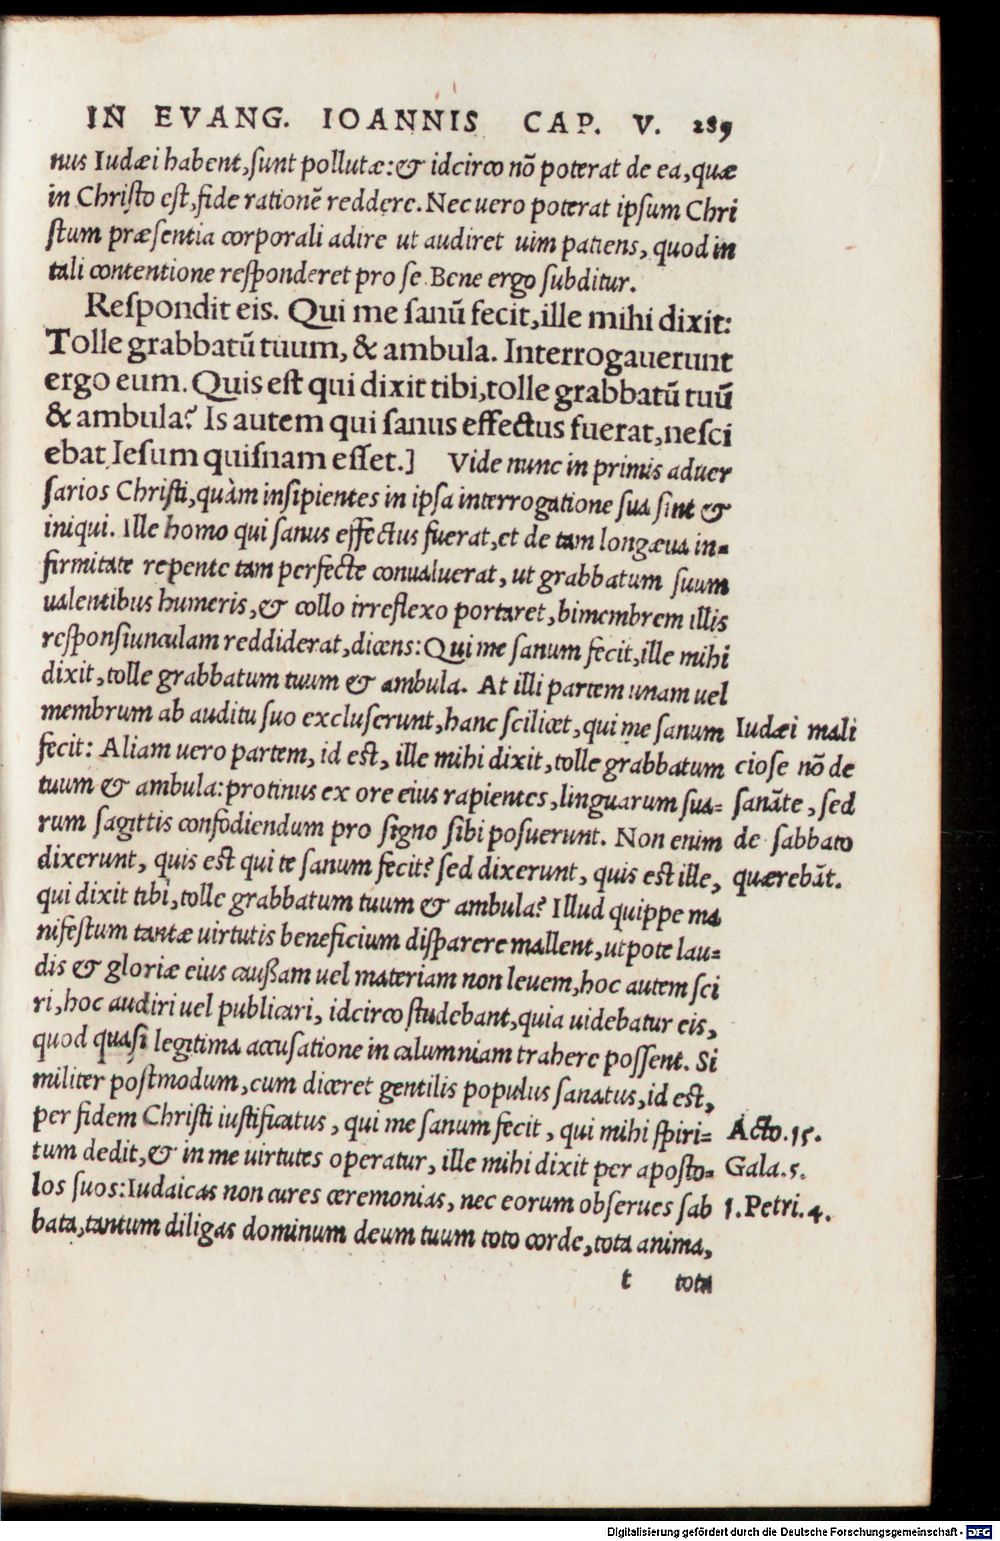 IN EVANG. IOANNIS CAP. V. 289
nus Iudæi habent, sunt pollutæ: & idcirco nõ poterat de ea, quæ
in Christo est, fide rationẽ reddere. Nec uero poterat ipsum Chri
stum præsentia corporali adire ut audiret uim patiens, quod in
tali contentione responderet pro se. Bene ergo subditur.
Respondit eis. Qui me sanũ fecit, ille mihi dixit:
Tolle grabbatũ tuum, & ambula. Interrogauerunt
ergo eum. Quis est qui dixit tibi, tolle grabbatũ tuũ
& ambula? Is autem qui sanus effectus fuerat, nesci
ebat Iesum quisnam esset.] Vide nunc in primis aduer
sarios Christi, quàm insipientes in ipsa interrogatione sua sint &
iniqui. Ille homo qui sanus effectus fuerat, et de tam longæua in=
firmitate repente tam perfecte conualuerat, ut grabbatum suum
ualentibus humeris, & collo irreflexo portaret, bimembrem illis
responsiunculam reddiderat, dicens: Qui me sanum fecit, ille mihi
dixit, tolle grabbatum tuum & ambula. At illi partem unam uel
membrum ab auditu suo excluserunt, hanc scilicet, qui me sanum
fecit: Aliam uero partem, id est, ille mihi dixit, tolle grabbatum
tuum & ambula: protinus ex ore eius rapientes, linguarum sua=
rum sagittis confodiendum pro signo sibi posuerunt. Non enim
dixerunt, quis est qui te sanum fecit? sed dixerunt, quis est ille,
qui dixit tibi, tolle grabbatum tuum & ambula? Illud quippe ma
nifestum tantæ uirtutis beneficium disparere mallent, utpote lau=
dis & gloriæ eius caußam uel materiam non leuem, hoc autem sci
ri, hoc audiri uel publicari, idcirco studebant, quia uidebatur eis,
quod quasi legitima accusatione in calumniam trahere possent. Si
militer postmodum, cum diceret gentilis populus sanatus, id est,
per fidem Christi iustificatus, qui me sanum fecit, qui mihi spiri=
tum dedit, & in me uirtutes operatur, ille mihi dixit per aposto=
los suos: Iudaicas non cures ceremonias, nec eorum obserues sab
bata, tantum diligas dominum deum tuum toto corde, tota anima,
t tota
Iudæi mali
ciose nõ de
sanãte, sed
de sabbato
quærebãt.
Acto. 15.
Gala. 5.
1. Petri. 4.
Digitalisierung gefördert durch die Deutsche Forschungsgemeinschaft - DFG